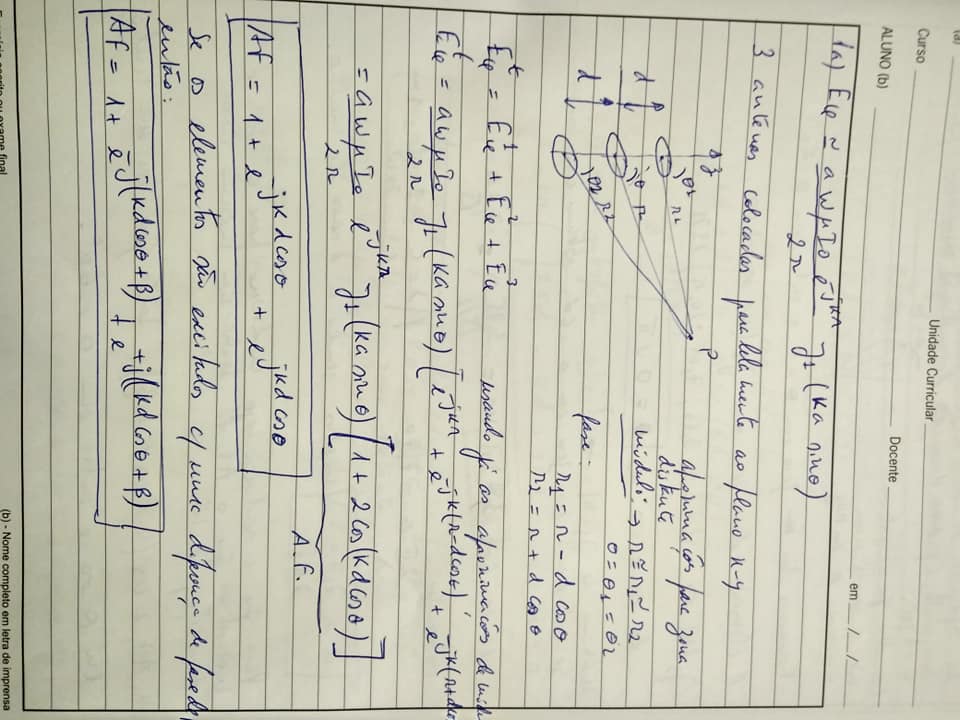 (a)
Unidade Curricular
Curso
Docente
ALUNO (b)
em / /
1a) Eφ ≃ a w μ I0 e^-jKr / 2r J1 (Ka sinθ)
3 antenas colocadas paralelamente ao plano x-y
z
P
θ1
r1
d
θ
r
d
θ2
r2
aproximações para zona
distante
módulo: → r ≅ r1 ≃ r2
θ = θ1 = θ2
fase:
r1 = r - d cosθ
r2 = r + d cosθ
Eφ^t = Eφ^1 + Eφ^2 + Eφ^3 usando já as aproximações de
Eφ^t = a w μ I0 / 2r J1 (Ka sinθ) [e^-jKr + e^-jK(r-dcosθ) + e^-jK(r+dco
= a w μ I0 / 2r e^-jKr J1 (Ka sinθ) [1 + 2cos(Kd cosθ)]
A.F.
AF = 1 + e^-jKdcosθ + e^jKdcosθ
Se os elementos são excitados c/ uma diferença de fase de
então:
AF = 1 + e^-j(Kdcosθ+β) + e^+j(Kdcosθ+β)
(b) - Nome completo em letra de imprensa